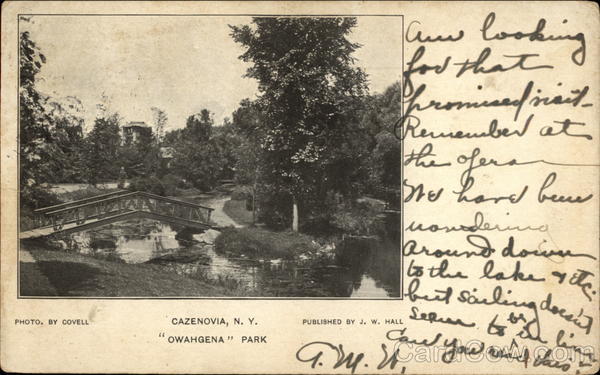 Am looking
for that
promised visit.
Remember at
the
We have been
wandering
around down
to the lake & the
but sailing doesn't
seem to be in
Can you read this
PHOTO. BY COVELL
CAZENOVIA, N. Y.
PUBLISHED BY J. W. HALL
"OWAHGENA" PARK
CardCow.com